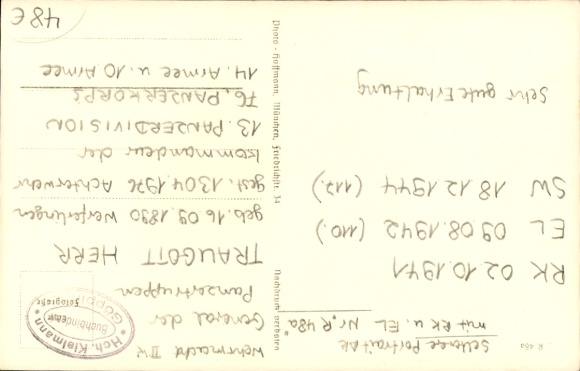 R 48a
Seltenes Portrait AK
mit RK u. EL Nr. R 48a
RK 02.10.1941
EL 09.08.1942 (110.)
SW 18.12.1944 (117.)
Sehr gute Erhaltung
Photo-Hoffmann, München, Friedrichstr. 34
Nachdruck verboten
Wehrmacht II.W
General der
Panzertruppen
TRAUGOTT HERR
geb. 16.09.1890 Weferlingen
gest. 13.04.1976 Achterwehr
Kommandeur der
13. PANZERDIVISION
76. PANZERKORPS
14. Armee u. 10 Armee
48€
Hch. Kielmann
Buchbinderei
Fotografie